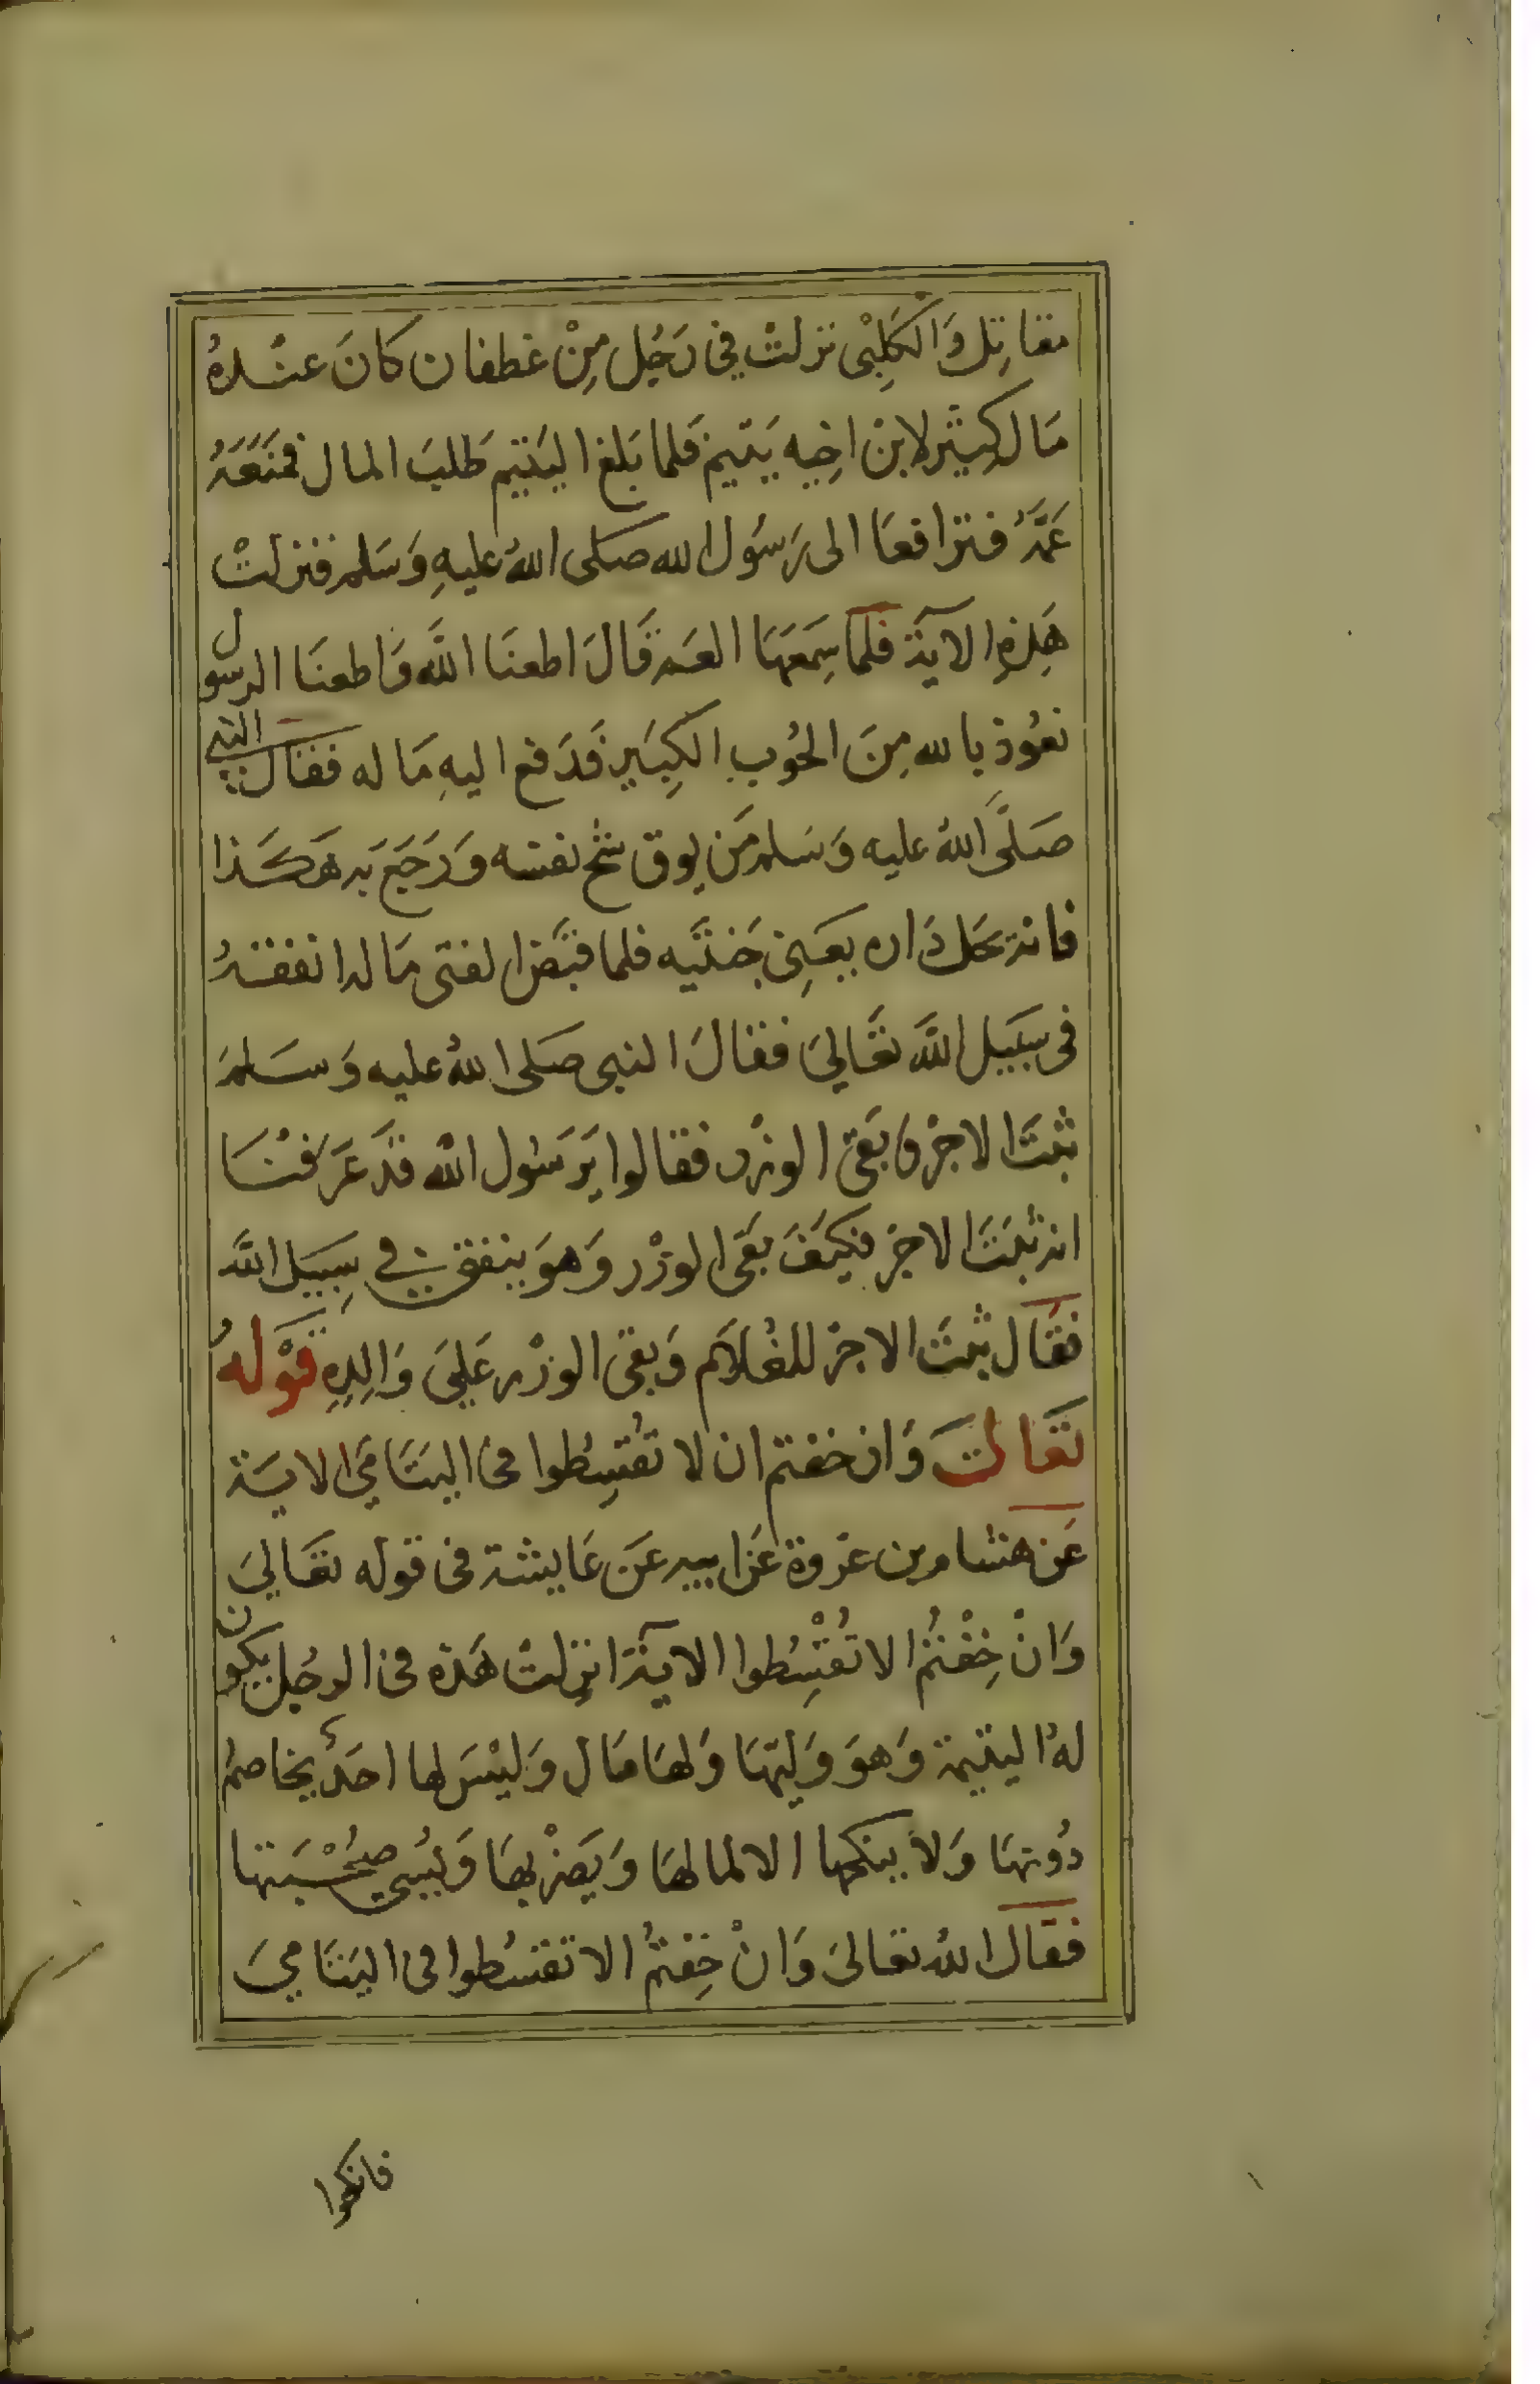 مقاتِل وَالكَلِبْى نزلتْ في رَجُل مِنْ غطفان كانَ عنْدهُ
مَال كِثير لابن اخِيه يَتيم فَلما بَلغ اليَتيم طَلبَ المال فمَنَعَهُ
عَمَّهُ فترافعَا الى رَسُول الله صَلى اللهُ عليهِ وَسَلم فنزلتْ
هَذِهِ الآية فلمّا سِمَعَهَا العَم قَالَ اطعنَا اللَّه وَاطعنَا الرسول
نعُوذ بالله مِنَ الحُوب الكِبَير فَدَفع اليهِ مَا له فقال النبي
صَلّى اللهُ عليه وَسَلم مَن يوق شح نفسه وَرَجَع به هَكَذا
فانه يحَل دَاره يعَنِى جَنتَّه فلما قبَض الفتى مَاله انفقهُ
فى سَبَيل اللَّه تعَالىَ فقالَ النبى صَلى اللهُ عليه وَسَلمَ
ثبتَ الاجْر وَبَقىَ الوزْر فقالوا يَرَسُول الله قدَ عَرَفنَا
انه ثبَتَ الاجْر فكيَفَ بَقىَ الوزْر وَهوَ ينفق في سِبَيل اللَّه
فقَال ثبتَ الاجْر للغُلاَم وَبقىَ الوزْر عَلىَ وَالِدِهِ قوْلهُ
تعَالىَ وَان خفتم ان لا تُقسِطُوا فى اليتَامَى الايَة
عَن هشام بن عرْوة عَن ابيه عَن عَايشة فى قوله تعَالىَ
وَانْ خِفْتُمْ الا تُقْسِطُوا الآية انزِلتْ هَذه فى الرجُل يكون
لهُ اليتيمة وَهوَ وَليّهَا وَلهَا مَال وَليْسَ لها احَدٌ يخاصم
دُونهَا وَلاَ ينكحها الا لمالهَا وَيَضرْبهَا وَيُسىء صُحْبَتها
فقَالَ اللهُ تعَالىَ وَانْ خِفتُمْ الا تقسُطوا فى اليَتَامىَ
فانكحوا